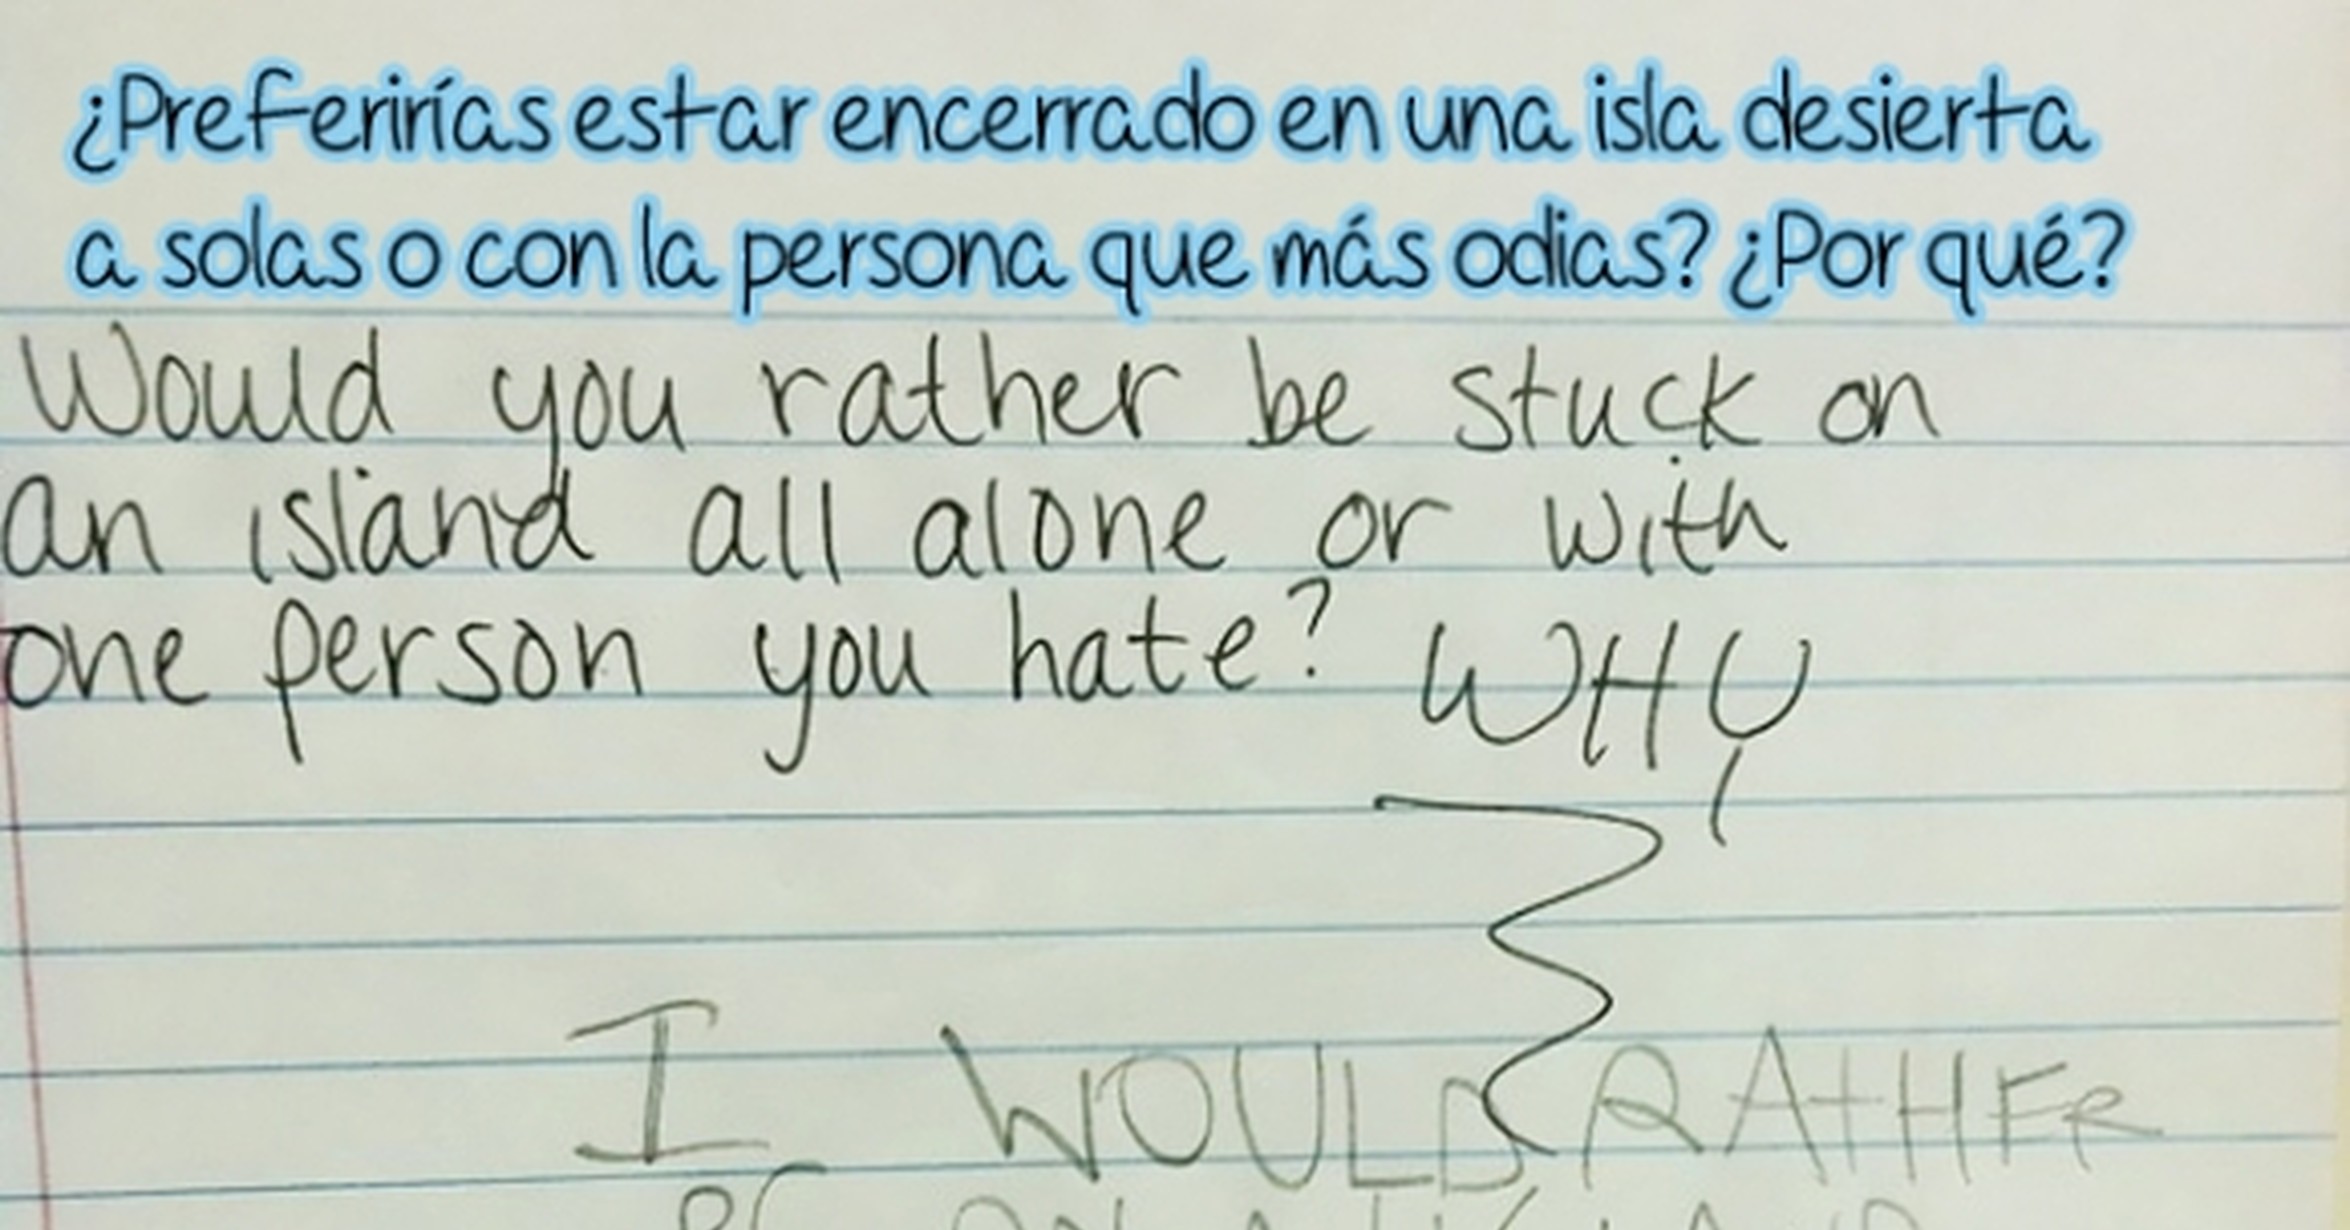 ¿Preferirías estar encerrado en una isla desierta
a solas o con la persona que más odias? ¿Por qué?
Would you rather be stuck on
an island all alone or with
one person you hate? WHY
I WOULD RATHER